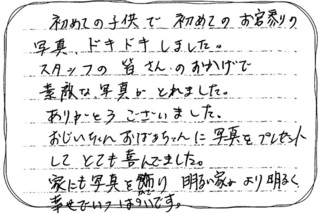 初めての子供で 初めてのお宮参りの
写真、ドキドキしました。
スタッフの皆さんのおかげで
素敵な写真がとれました。
ありがとうございました。
おじいちゃんおばあちゃんに写真をプレゼント
してとても喜んでました。
家にも写真を飾り 明るい家が より明るく
幸せでいっぱいです。